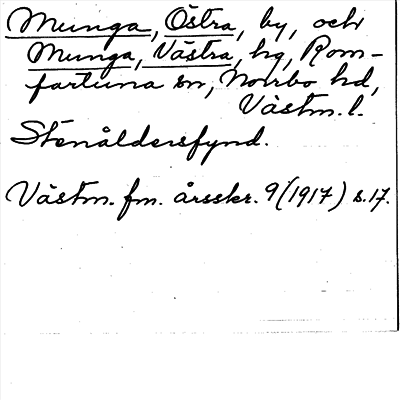 Munga, Östra, by, och
Munga, Västra, hg, Rom-
fartuna sn, Norrbo hd,
Västm. l.
Stenåldersfynd.
Västm. fm. årsskr. 9 (1917) s. 17.